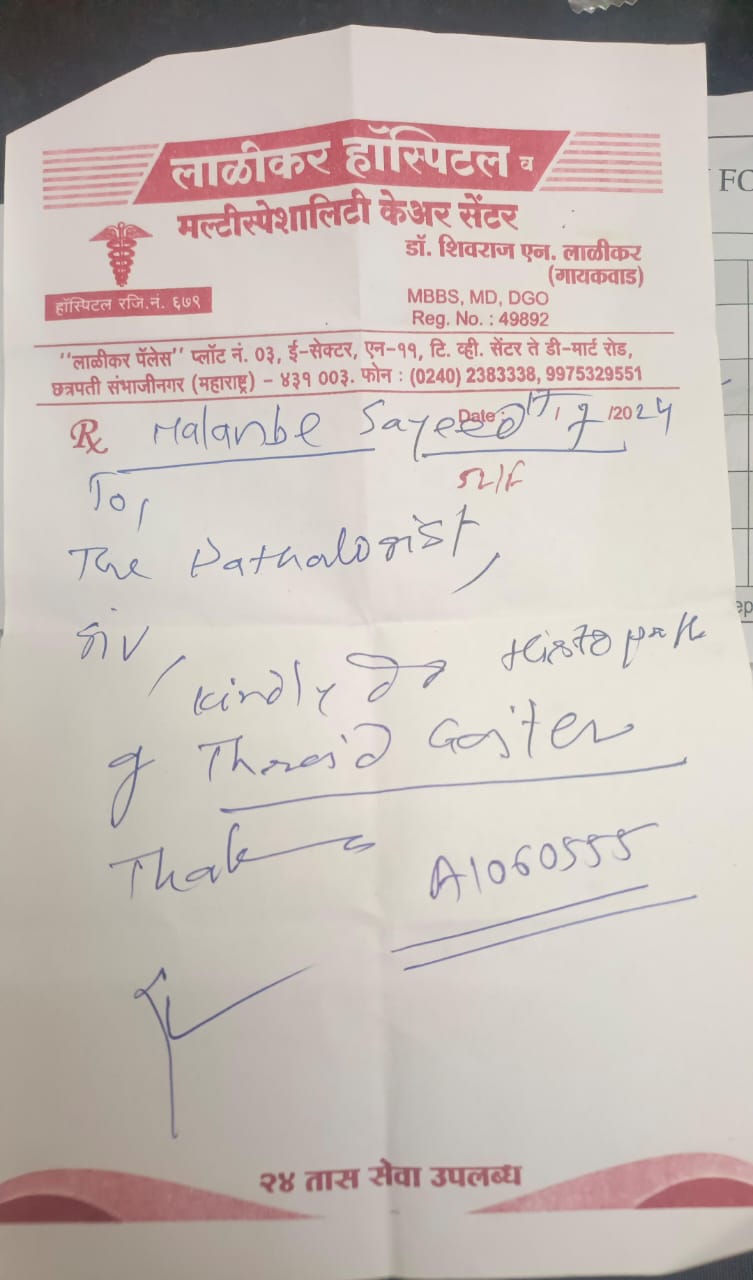 लाळीकर हॉस्पिटल व
मल्टीस्पेशालिटी केअर सेंटर
डॉ. शिवराज एन. लाळीकर
(गायकवाड)
हॉस्पिटल रजि.नं. ६७९
MBBS, MD, DGO
Reg. No. : 49892
"लाळीकर पॅलेस" प्लॉट नं. ०३, ई-सेक्टर, एन-११, टि. व्ही. सेंटर ते डी-मार्ट रोड,
छत्रपती संभाजीनगर (महाराष्ट्र) - ४३१ ००३. फोन : (0240) 2383338, 9975329551
Rx Malanbe Sayeed Date : 17/ /2024
52/F
To,
The Pathalogist,
Sir,
Kindly do Histopath
of Thyroid Goiter
A1060555
२४ तास सेवा उपलब्ध
FO